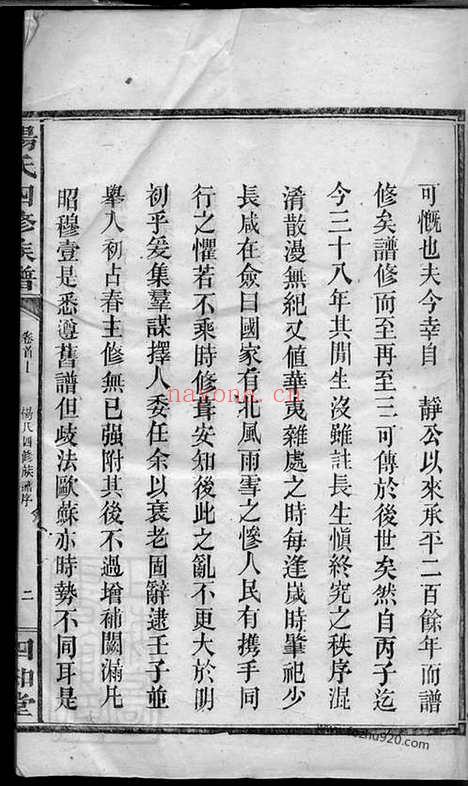 可慨也夫今幸自　靜公以來承平二百餘年而譜
修矣譜修而至再至三可傳於後世矣然自丙子迄
今三十八年其間生沒雖註長生愼終究之秩序混
淆散漫無紀又値華夷雜處之時每逢歲時肇祀少
長咸在僉曰國家有北風雨雪之慘人民有攜手同
行之懼若不乘時修葺安知後此之亂不更大於明
初乎爰集羣謀擇人委任余以衰老固辭逮壬子並
舉人初占春主修無已强附其後不過增補闕漏凡
昭穆壹是悉遵舊譜但歧法歐蘇亦時勢不同耳是
楊氏四修族譜
卷首上
楊氏四修族譜序
二
四知堂
nayona.cn